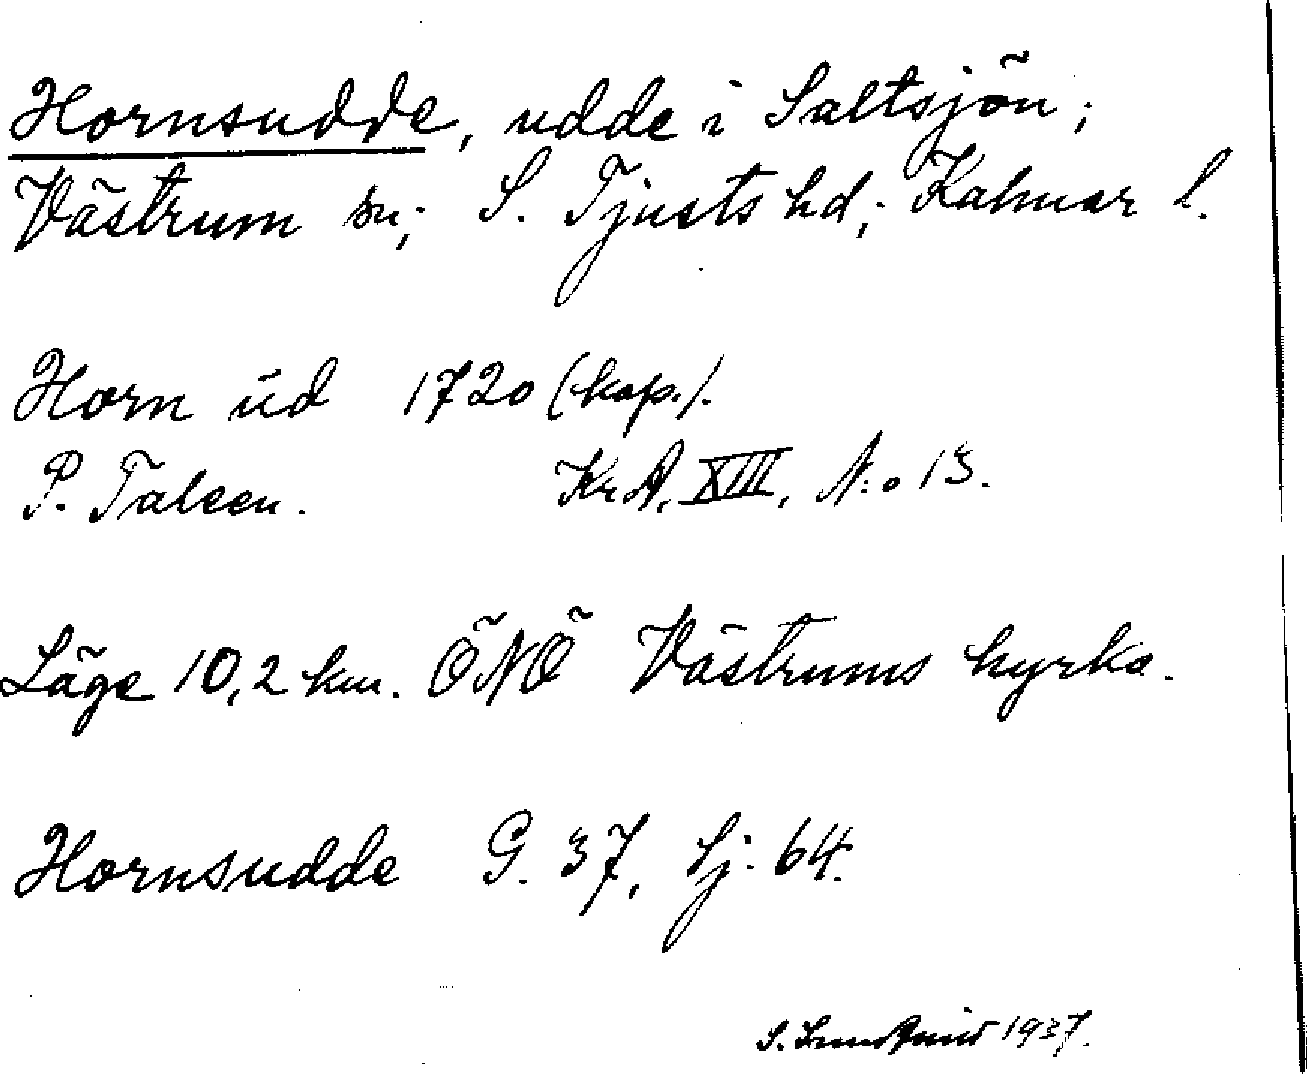 Hornsudde, udde i Saltsjön;
Västrum sn; S. Tjusts hd; Kalmar l.
Horn ud 1720 (kop.).
P. Taleen. KrA, XIII, N:o 13.
Läge 10,2 km. ÖNÖ Västrums kyrka.
Hornsudde G. 37, Sj. 64.
S. Lundqvist 1937.